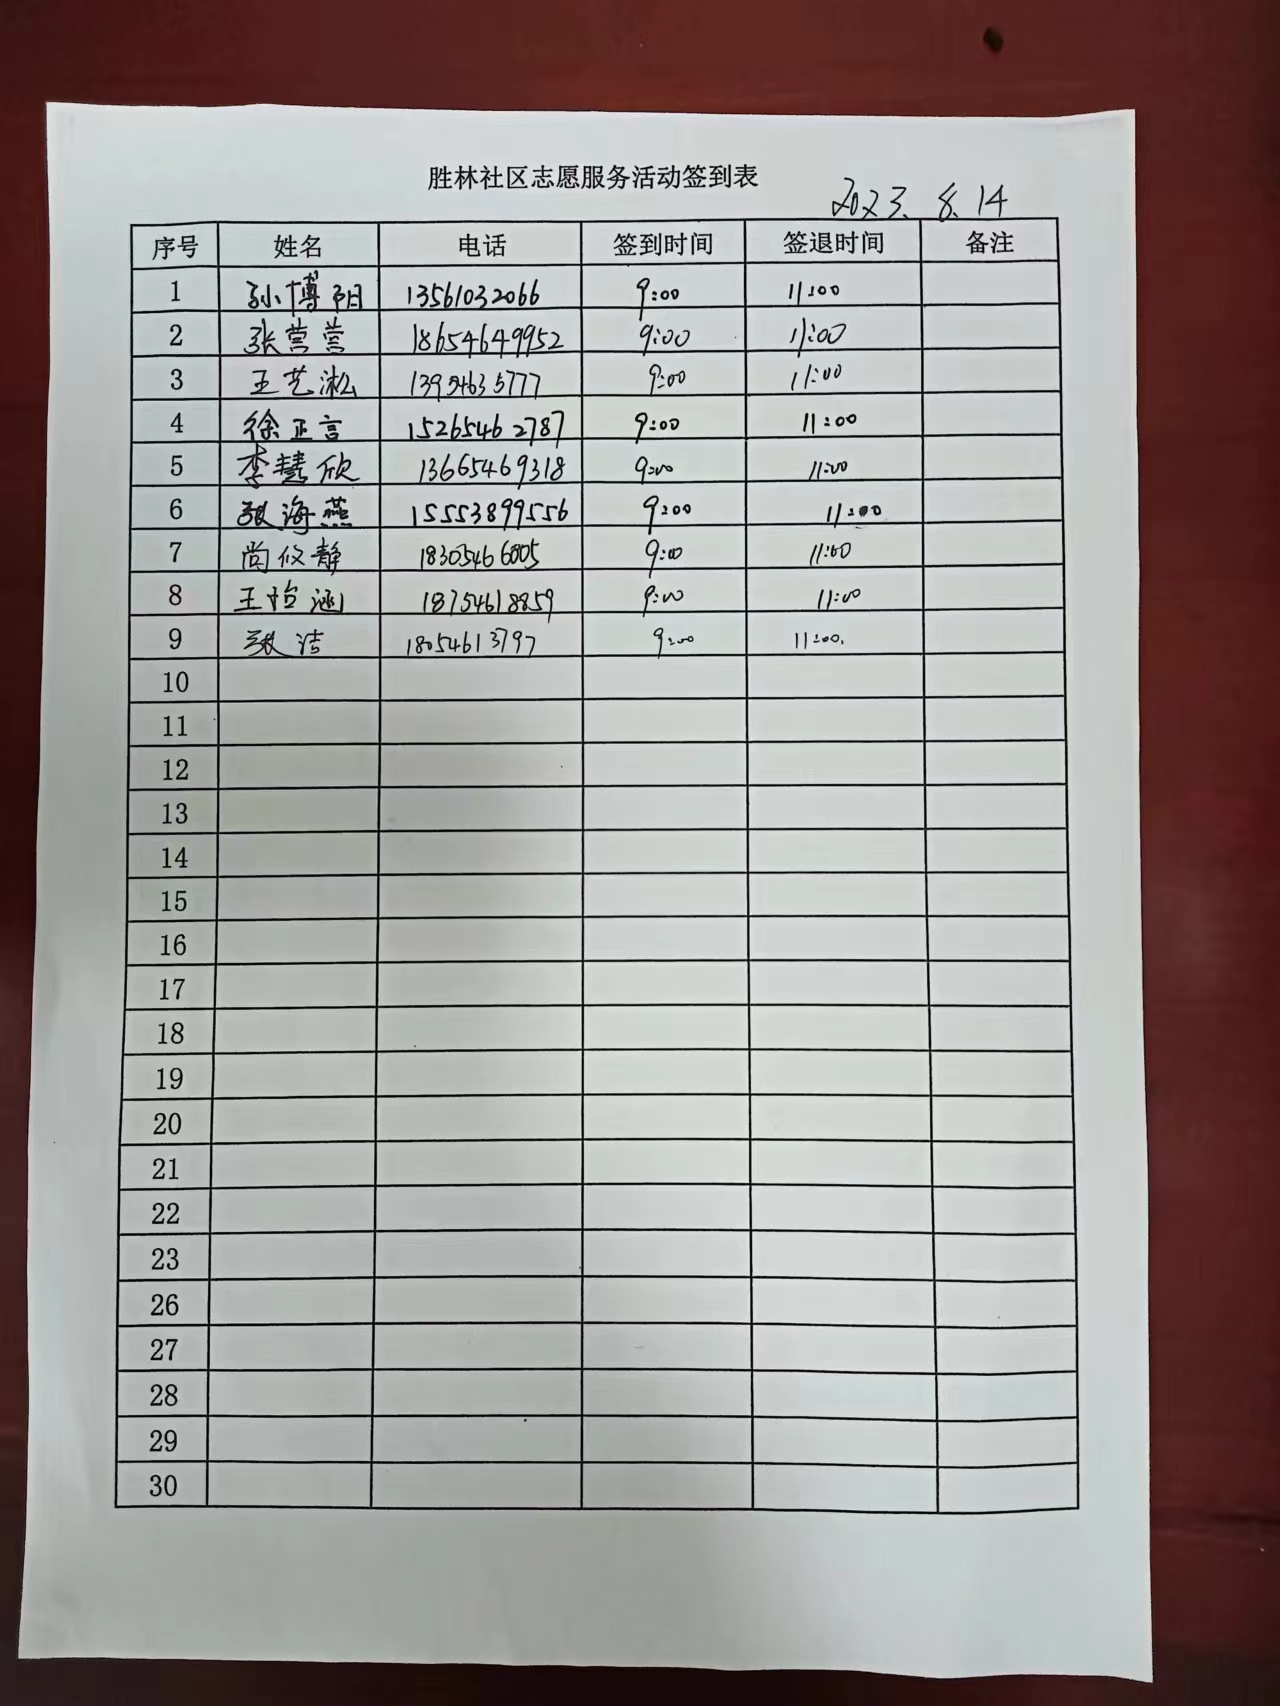 胜林社区志愿服务活动签到表
2023.8.14
序号 姓名 电话 签到时间 签退时间 备注
1 孙博阳 13561032066 9:00 11:00
2 张营营 18654649952 9:00 11:00
3 王艺淞 13954635777 9:00 11:00
4 徐正言 15265462787 9:00 11:00
5 李慧欣 13665469318 9:00 11:00
6 张海燕 15553899556 9:00 11:00
7 尚攸静 18305466005 9:00 11:00
8 王怡涵 18754618859 9:00 11:00
9 张洁 18054613797 9:00 11:00.
10
11
12
13
14
15
16
17
18
19
20
21
22
23
26
27
28
29
30